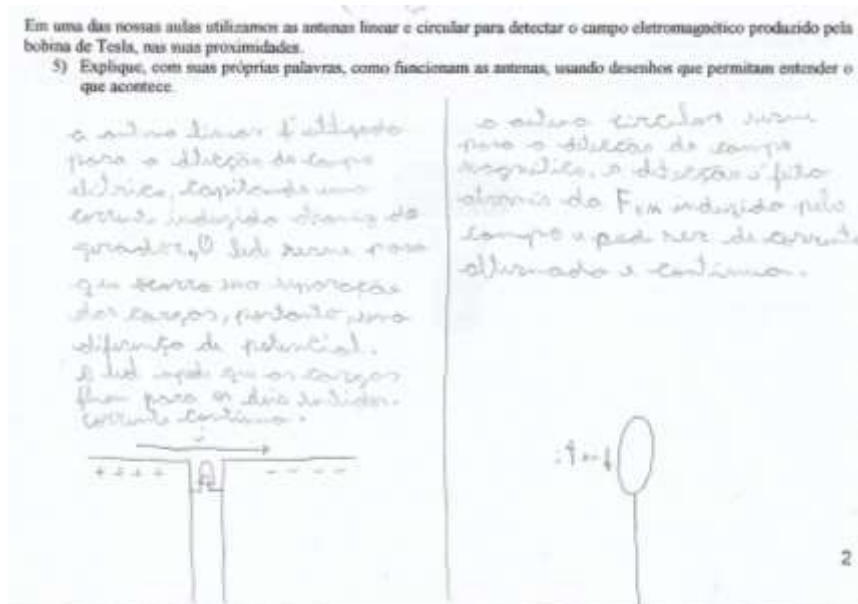 Em uma das nossas aulas utilizamos as antenas linear e circular para detectar o campo eletromagnético produzido pela
bobina de Tesla, nas suas proximidades.
5) Explique, com suas próprias palavras, como funcionam as antenas, usando desenhos que permitam entender o
que acontece.
a antena linear é utilizada
para a detecção do campo
elétrico, capitando uma
corrente induzida através do
gerador, O led serve para
que ocorra uma separação
das cargas, portanto, uma
diferença de potencial.
O led impede que as cargas
fluam para os dois sentidos.
corrente contínua.
i
+ + + + - - - -
a antena circular serve
para a detecção do campo
magnético, a detecção é feita
através da Fem induzida pelo
campo e pode ser de corrente
alternada e contínua.
2